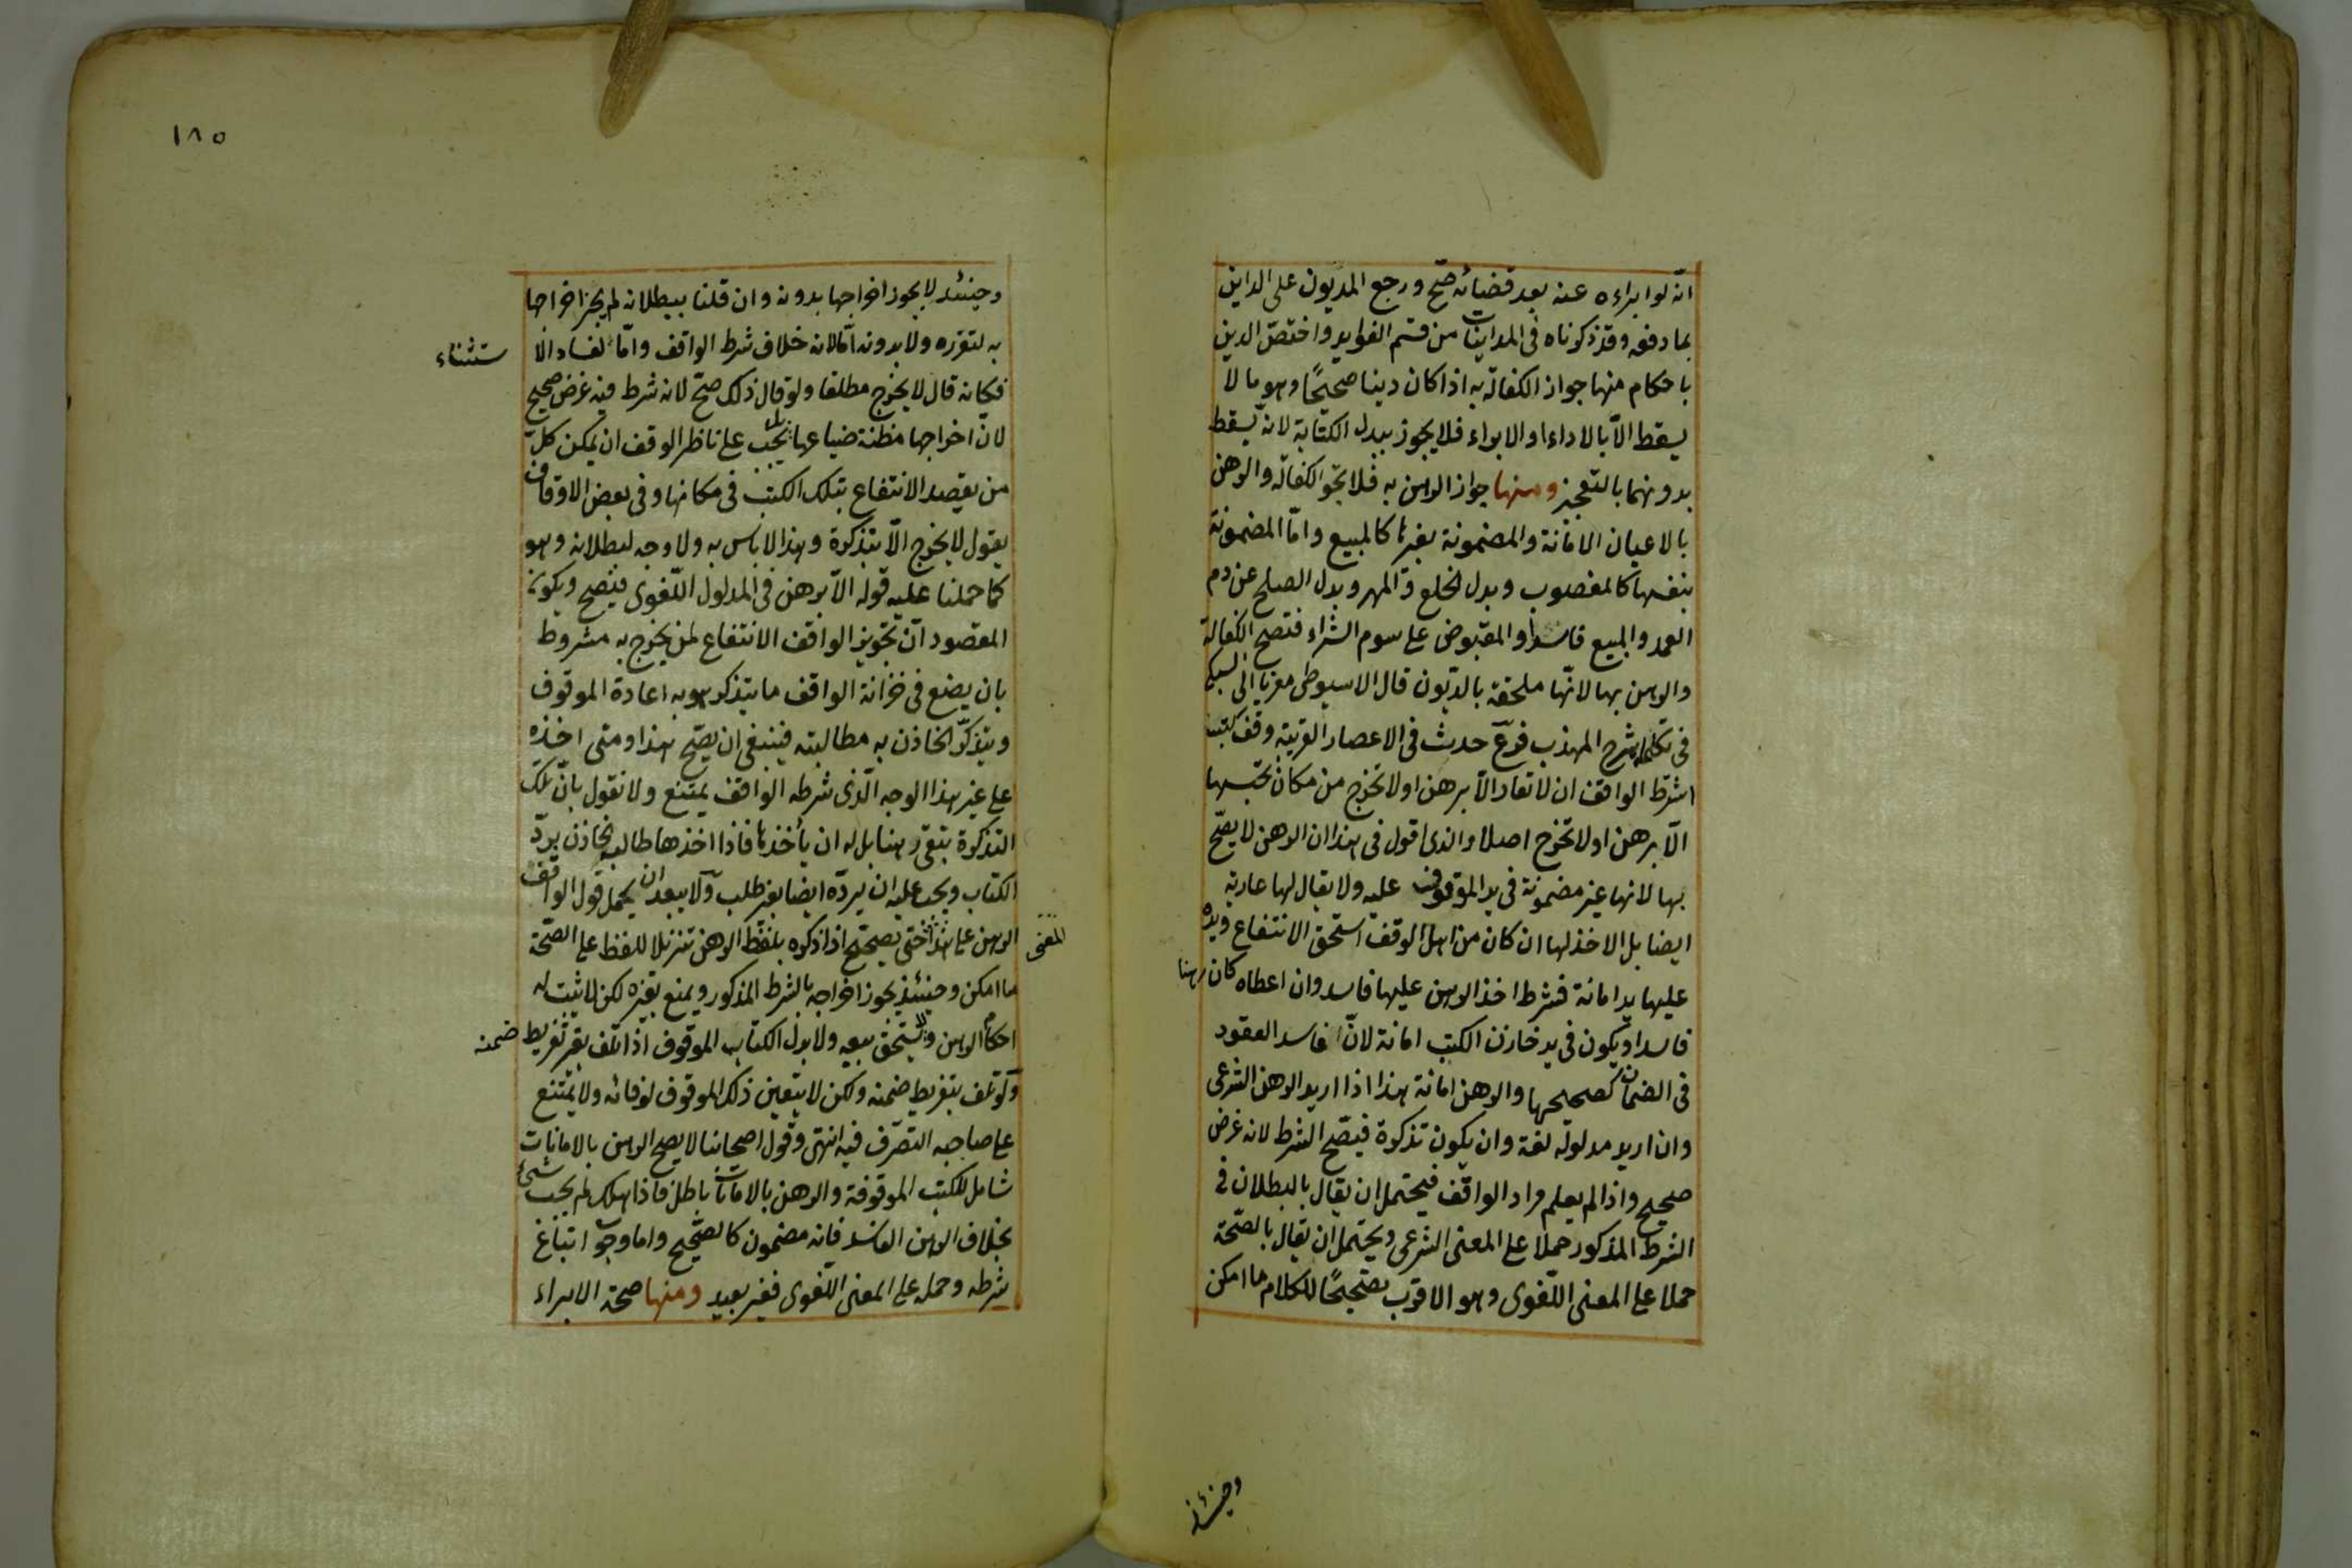 انه لو ابراءه عنه بعد قضائه صح ورجع المديون على الداين
بما دفعه وقد ذكرناه فى المداينات من قسم الفوايد واختص الدين
باحكام منها جواز الكفالة به اذا كان دينا صحيحًا وهو ما لا
يسقط الا بالاداء او الابراء فلا يجوز ببدل الكتابة لانه يسقط
بدونهما بالتعجيز ومنها جواز الرهن به فلا تجوز الكفالة والرهن
بالاعيان الامانة والمضمونة بغيرها كالمبيع واما المضمونة
بنفسها كالمغصوب وبدل الخلع والمهر وبدل الصلح عن دم
العمد والمبيع فاسدا والمقبوض على سوم الشراء فتصح الكفالة
والرهن بها لانها ملحقة بالديون قال الاسيوطى معزيا الى السبكى
فى تكملة شرح المهذب فرع حدث فى الاعصار القريبة وقف كتب
اشترط الواقف ان لا تعار الا برهن او لا تخرج من مكان تحبيسها
الا برهن او لا تخرج اصلا والذى اقول فى هذا ان الرهن لا يصح
بها لانها غير مضمونة فى يد الموقوف عليه ولا يقال لها عارية
ايضا بل الاخذ لها ان كان من اهل الوقف استحق الانتفاع ويده
عليها يد امانة فشرط اخذ الرهن عليها فاسد وان اعطاه كان رهنا
فاسدا ويكون فى يد خازن الكتب امانة لان فاسد العقود
فى الضمان كصحيحها والرهن امانة هذا اذا اريد الرهن الشرعى
وان اريد مدلوله لغة وان يكون تذكرة فيصح الشرط لانه غرض
صحيح واذا لم يعلم مراد الواقف فيحتمل ان يقال بالبطلان فى
الشرط المذكور حملا على المعنى الشرعى ويحتمل ان يقال بالصحة
حملا على المعنى اللغوى وهو الاقرب تصحيحًا للكلام ما امكن
وحينئذ
١٨٥
وحينئذ لا يجوز اخراجها بدونه وان قلنا ببطلانه لم يجز اخراجها
به لتعذره ولا بدونه اما لانه خلاف شرط الواقف واما لفساد الا
ستثناء
فكانه قال لا يخرج مطلقا ولو قال ذلك صح لانه شرط فيه غرض صحيح
لان اخراجها مظنة ضياعها بل يجب على ناظر الوقف ان يمكن كل
من يقصد الانتفاع بتلك الكتب فى مكانها وفى بعض الاوقاف
يقول لا يخرج الا بتذكرة وهذا لا باس به ولا وجه لبطلانه وهو
كما حملنا عليه قوله الا برهن فى المدلول اللغوى فيصح ويكون
المقصود ان تجويز الواقف الانتفاع لمن يخرج به مشروط
بان يضع فى خزانة الواقف ما يتذكر هو به اعادة الموقوف
ويتذكر الخازن به مطالبته فينبغى ان يصح هذا ومتى اخذه
على غير هذا الوجه الذى شرطه الواقف يمتنع ولا نقول بان تلك
التذكرة تبقى رهنا بل له ان يأخذها فاذا اخذها طالبه الخازن برد
الكتاب ويجب عليه ان يرده ايضا بغير طلب ولا يبعد ان يحمل قول الواقف
الرهن على هذا حتى يصح اذا ذكره بلفظ الرهن تنزيلا للفظ على الصحة
المعنى
ما امكن وحينئذ يجوز اخراجه بالشرط المذكور ويمنع بغيره لكن لا يثبت له
احكام الرهن ولا يستحق بيعه ولا بدل الكتاب الموقوف اذا تلف بغير تفريط
ضمنه
ولو تلف بتفريط ضمنه ولكن لا يتعين ذلك الموقوف لوفائه ولا يمتنع
على صاحبه التصرف فيه انتهى وقول اصحابنا لا يصح الرهن بالامانات
شامل للكتب الموقوفة والرهن بالامانات باطل فاذا هلك لم يجب شئ
بخلاف الرهن الفاسد فانه مضمون كالصحيح واما وجوب اتباع
شرطه وحمله على المعنى اللغوى فغير بعيد ومنها صحة الابراء